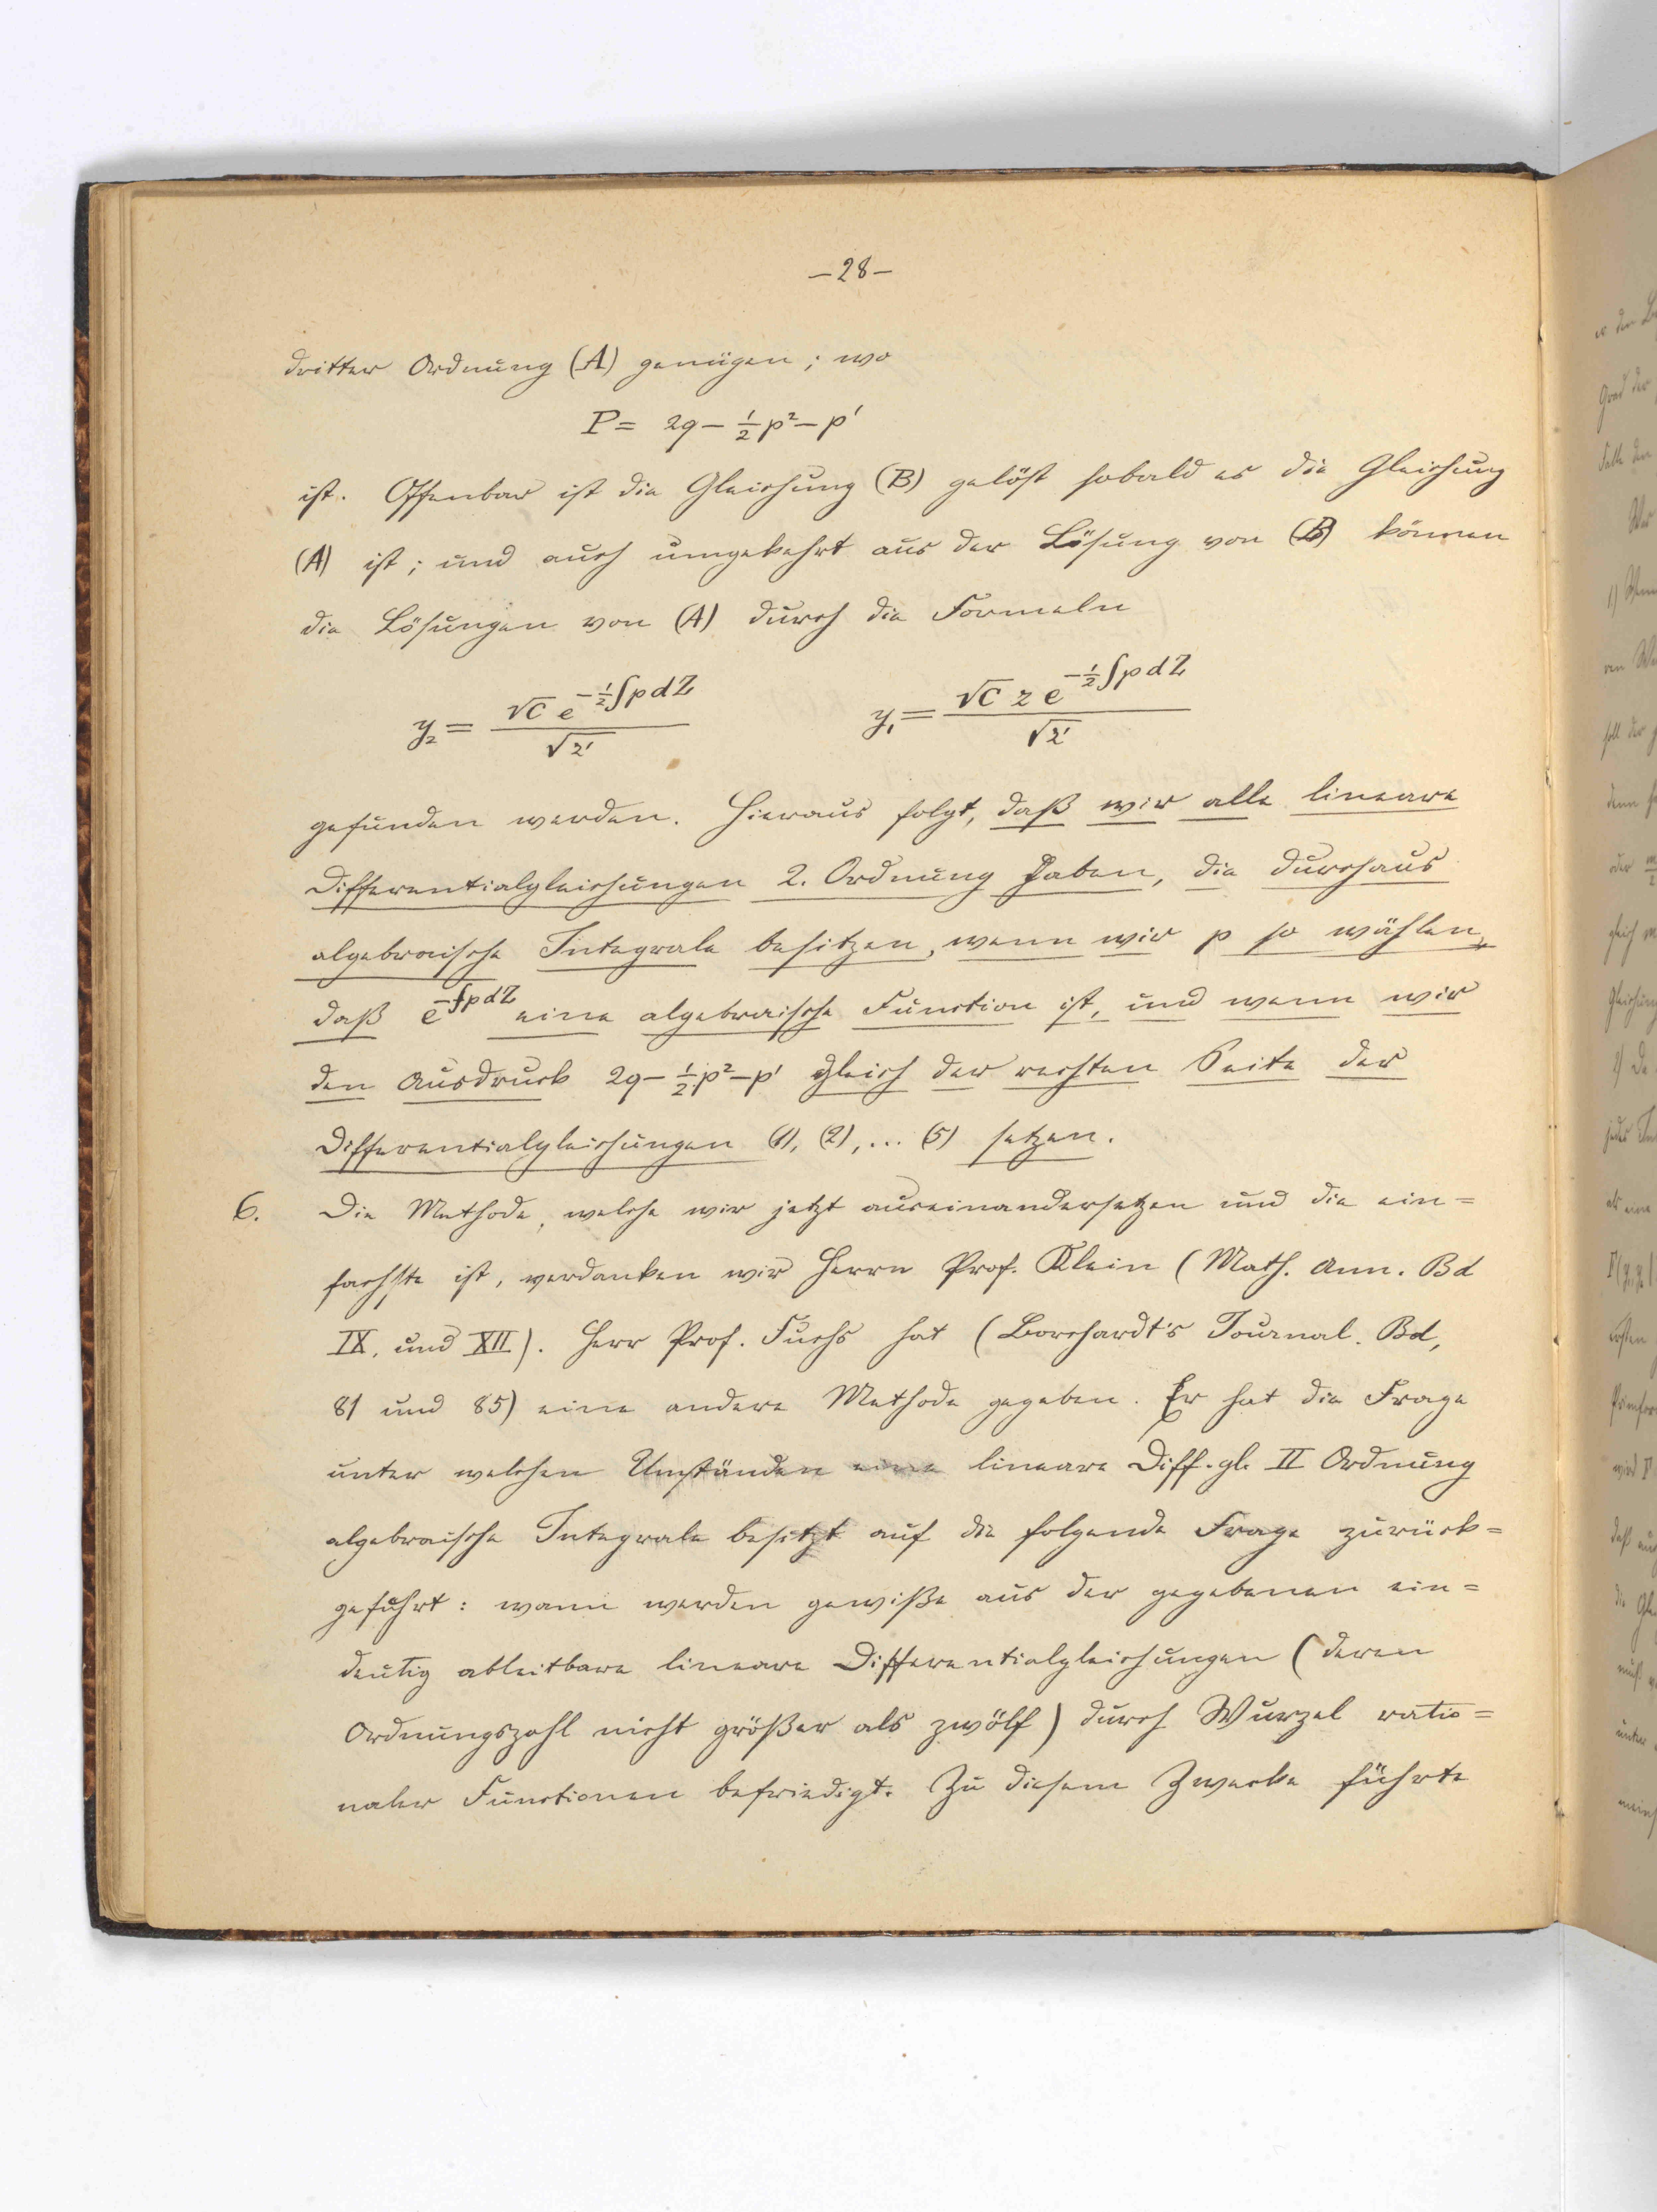 –28–
dritter Ordnung (A) genügen; wo
P = 2q – ½p² – p'
ist. Offenbar ist die Gleichung (B) gelöst sobald es die Gleichung
(A) ist; und auch umgekehrt aus der Lösung von (B) können
die Lösungen von (A) durch die Formeln
y₂ = √C e^{–½∫pdZ} / √z' y₁ = √C z e^{–½∫pdZ} / √z'
gefunden werden. Hieraus folgt, daß wir alle lineare
Differentialgleichungen 2. Ordnung haben, die durchaus
algebraische Integrale besitzen, wenn wir p so wählen,
daß e^{–∫pdZ} eine algebraische Function ist, und wenn wir
den Ausdruck 2q – ½p² – p' gleich der rechten Seite der
Differentialgleichungen (1), (2), ... (5) setzen.
6. Die Methode, welche wir jetzt auseinandersetzen und die ein=
fachste ist, verdanken wir Herrn Prof. Klein (Math. Ann. Bd
IX. und XII). Herr Prof. Fuchs hat (Borchardt's Journal. Bd,
81 und 85) eine andere Methode gegeben. Er hat die Frage
unter welchen Umständen eine lineare Diff.gl. II Ordnung
algebraische Integrale besitzt auf die folgende Frage zurück=
geführt: wann werden gewiße aus der gegebenen ein=
deutig ableitbare lineare Differentialgleichungen (deren
Ordnungszahl nicht größer als zwölf) durch Wurzel ratio=
naler Functionen befriedigt. Zu diesem Zwecke führte